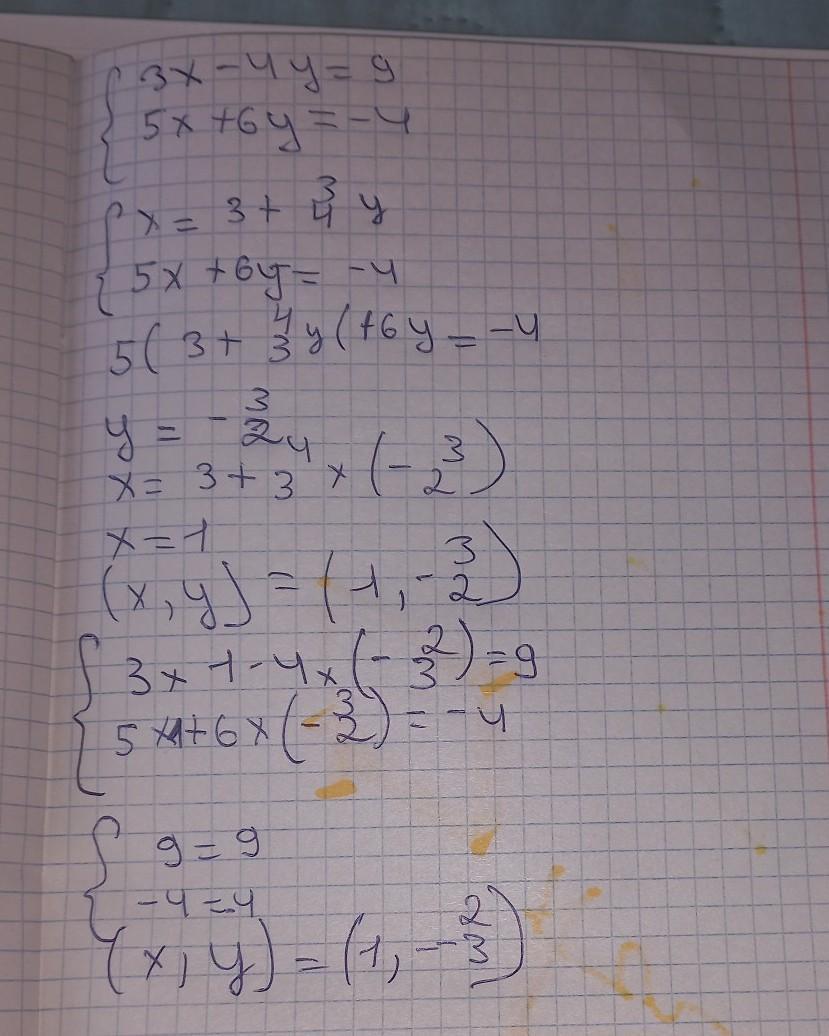 { 3x - 4y = 9
5x + 6y = -4
{ x = 3 + 3/4 y
5x + 6y = -4
5( 3 + 4/3 y( + 6y = -4
y = - 3/2
x = 3 + 4/3 × (- 3/2)
x = 1
(x, y) = (1, - 3/2)
{ 3 × 1 - 4 × (- 2/3) = 9
5 × 1 + 6 × (- 3/2) = -4
{ 9 = 9
-4 = -4
(x, y) = (1, - 2/3)